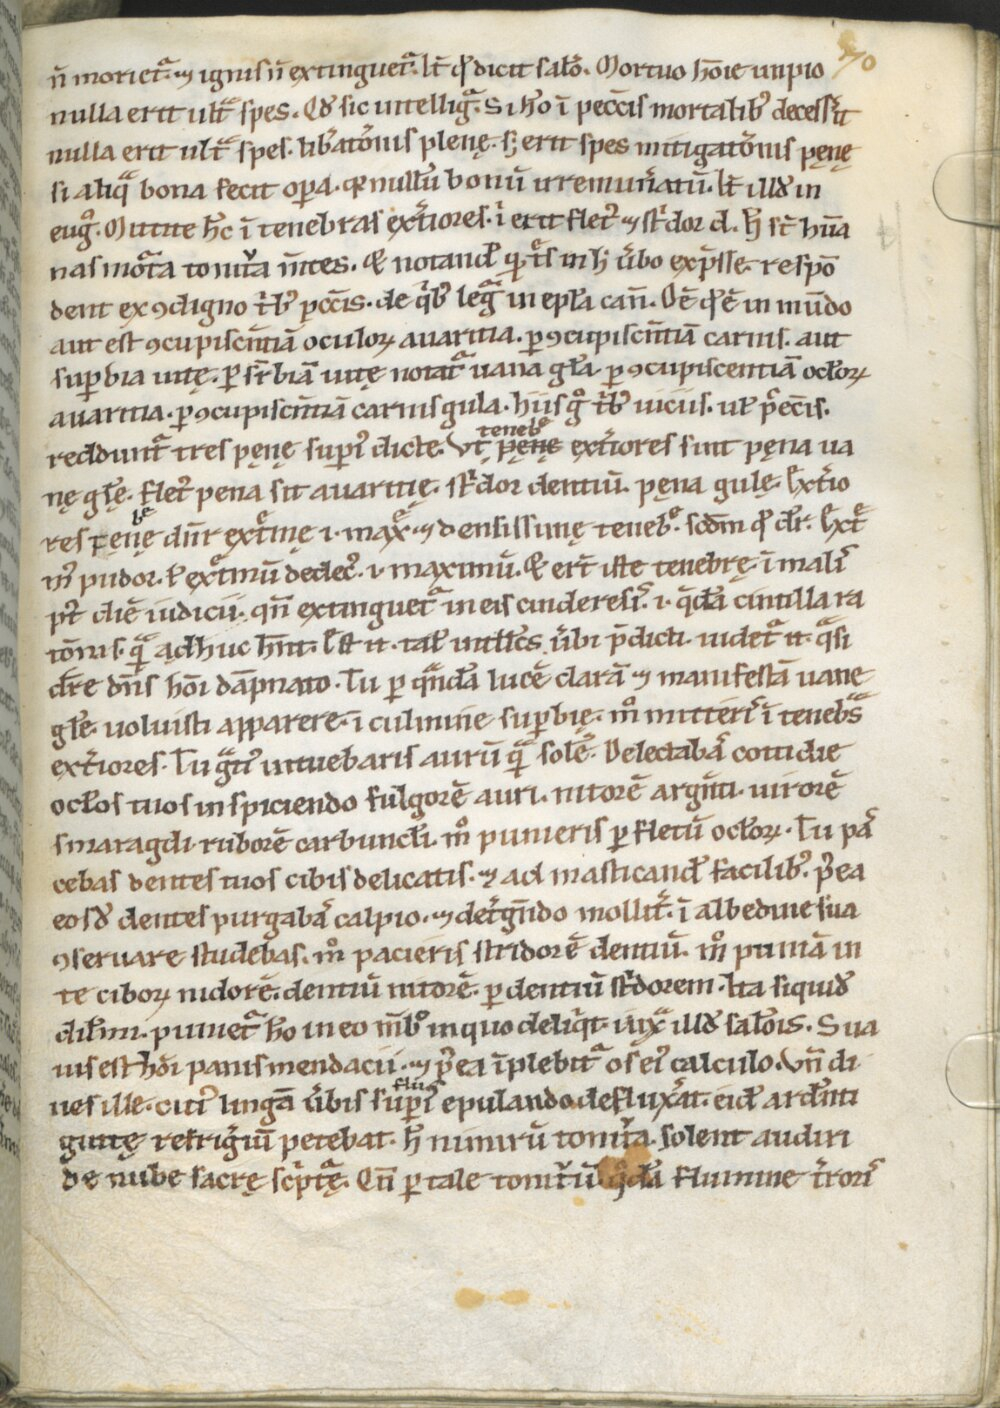 70
n̄ moriet᷑. ⁊ ignis n̄ extinguet᷑. Ł ꝙ dicit saƚo. Mortuo hōıe impio
nulla erit ult᷑ spes. Qđ sic intellig᷑. Si hō ī pecc̄is mortalib᷒ decess̄it
nulla erit ult᷑ spes. lib̄atōnis plenę. sꝫ erit spes mitigatōnis pęnę
si aliq̄ bona fecit oꝑa. ꝙ nullū bonū irremun̄atū. Ł illđ in
eug̊. Mitite h̄c ī tenebras ext̄iores. ī erit flet᷒ ⁊ st͛dor d. h̄ st̄ hūa
nas mōta tonit̄a m̄tes. Et notanđ ꝙ t͛s in h̄ ūbo exp̄sse. respō
dent ex ꝯdigno t͛b᷒ pcc̄is. de q͛b᷒ leg᷑ in epƚa can̄. Oē̄ qđ ē in mūdo
aut est ꝯcupiscn̄tiā oculoꝝ auaritia. ꝑ ꝯcupiscn̄tiā carnis. aut
suꝑbia uitę. Ꝑ suꝑbiā uitę notat᷑ uana gƚa. ꝑ ꝯcupiscentiā ocƚoꝝ
auaritia. ꝑ ꝯcupiscn̄tiā carnis gula. hiis g̊ t͛b᷒ uiciis. uƚ p̄cc̄is.
reddunt᷑ tres pęnę supi᷒ dicte. Vt pęnę teneb᷒ ext̄iores sint pęna ua
nę gƚę. flet᷒ pena sit auaritię. st͛dor dentiū. pęna gulę. Ext̄io
res tenebę dn̄r ext̄mę .i. maxę ⁊ densissimę teneb᷒. scđm ꝙ dr̄. Ext̄
m᷒ pudor. ƚ ext̄mū dedec᷒. i. maximū. Et er̄t iste tenebrę. ī mali᷒
pt̄ diē iudicii. qn̄ extinguet᷑ in eis cinderesi᷒. i. q̄dā cintilla ra
tōnis. q̄ adhuc hn̄t. Est it. taƚ intƚƚcs ūbi p̄dicti. uidet᷑ it. q̄si
dr̄e dn̄s hōı dāpnato. Tu ꝑ q̄ndā lucē clarā ⁊ manifestā uane
gƚę. uoluisti apparere. ī culmine suꝑbię. m̊ mitteri᷒ ī teneb̄s
ext̄iores. Tu g̊ti᷒ intuebaris aurū q̄ solē. Delectabā᷒ cottidie
ocƚos tuos inspiciendo fulgorē auri. nitorē argn̄ti. uirorē
smaragdi. ruborē carbuncƚi. m̊ punieris ꝑ fletū ocƚoꝝ. Tu pā᷒
cebas dentes tuos cibis delicatis. ⁊ ad masticanđ facilib᷒. p̄ea
eosđ dentes purgabā᷒ calpio. ⁊ det̄gn̄do mollit̄. ī albedine sua
ꝯseruare studebas. m̊ pacieris stridorē dentiū. m̊ puniā in
te ciboꝝ nidorē. dentiū nitorē. ꝑ dentiū st͛dorem. Ita siquiđ
diƚmi. puniet᷑ hō in eo mb̄o in quo deliq̄t. iux᷑ illđ saƚois. Sua
uis est hōı panis mendacii. ⁊ p̄ea īplebit᷑ os ei᷒ calculo. Vn̄ di
ues ille. cui᷒ lingā ūbis suꝑfluis epulando defluxat̄. eiđ ardn̄ti
guttę refriḡiū petebat. h̄ nimirū tonit̄a. solent audiri
de nube sacrę sc͛ptę᷑. Qn̄ ꝑ tale tonit̄ū. q̄dā flumine t̄rori᷒